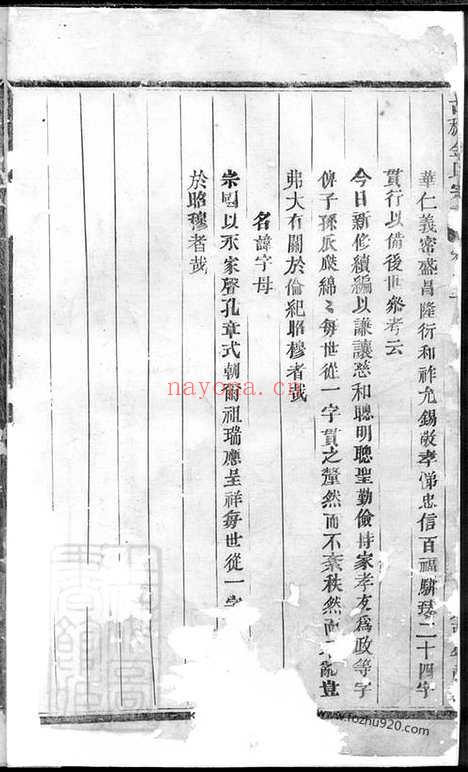 華仁義密盛昌隆衍和祚允錫敬孝悌忠信百福駢臻二十四字
貫行以備後世參考云
今日新修續編以謙讓慈和聰明聰聖勤儉持家孝友為政等字
俾子孫瓜瓞綿〻每世從一字貫之釐然而不紊秩然而不亂豈
弗大有關於倫紀昭穆者哉
名諱字母
宗國以永家聲孔章式朝爾祖瑞應呈祥每世從一字
於昭穆者哉
nayona.cn
www.fozhu920.com